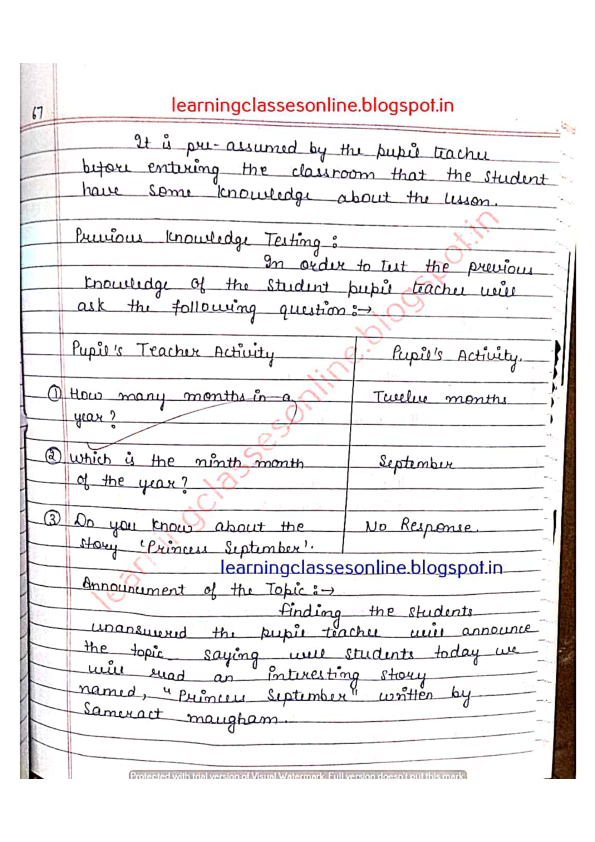 learningclassesonline.blogspot.in
67
It is pre-assumed by the pupil teacher
before entering the classroom that the student
have some knowledge about the lesson.
Previous Knowledge Testing :
In order to Test the previous
knowledge of the student pupil teacher will
ask the following question :→
Pupil's Teacher Activity
Pupil's Activity.
① How many months in a
year ?
Twelve months
② Which is the ninth month
of the year ?
September
③ Do you know about the
story 'Princess September'.
No Response.
learningclassesonline.blogspot.in
learningclassesonline.blogspot.in
Announcement of the Topic :→
finding the students
unanswered the pupil teacher will announce
the topic saying well students today we
will read an interesting story
named, "Princess September" written by
Sameract maugham.
Protected with trial version of Visual Watermark. Full version doesn't put this mark.